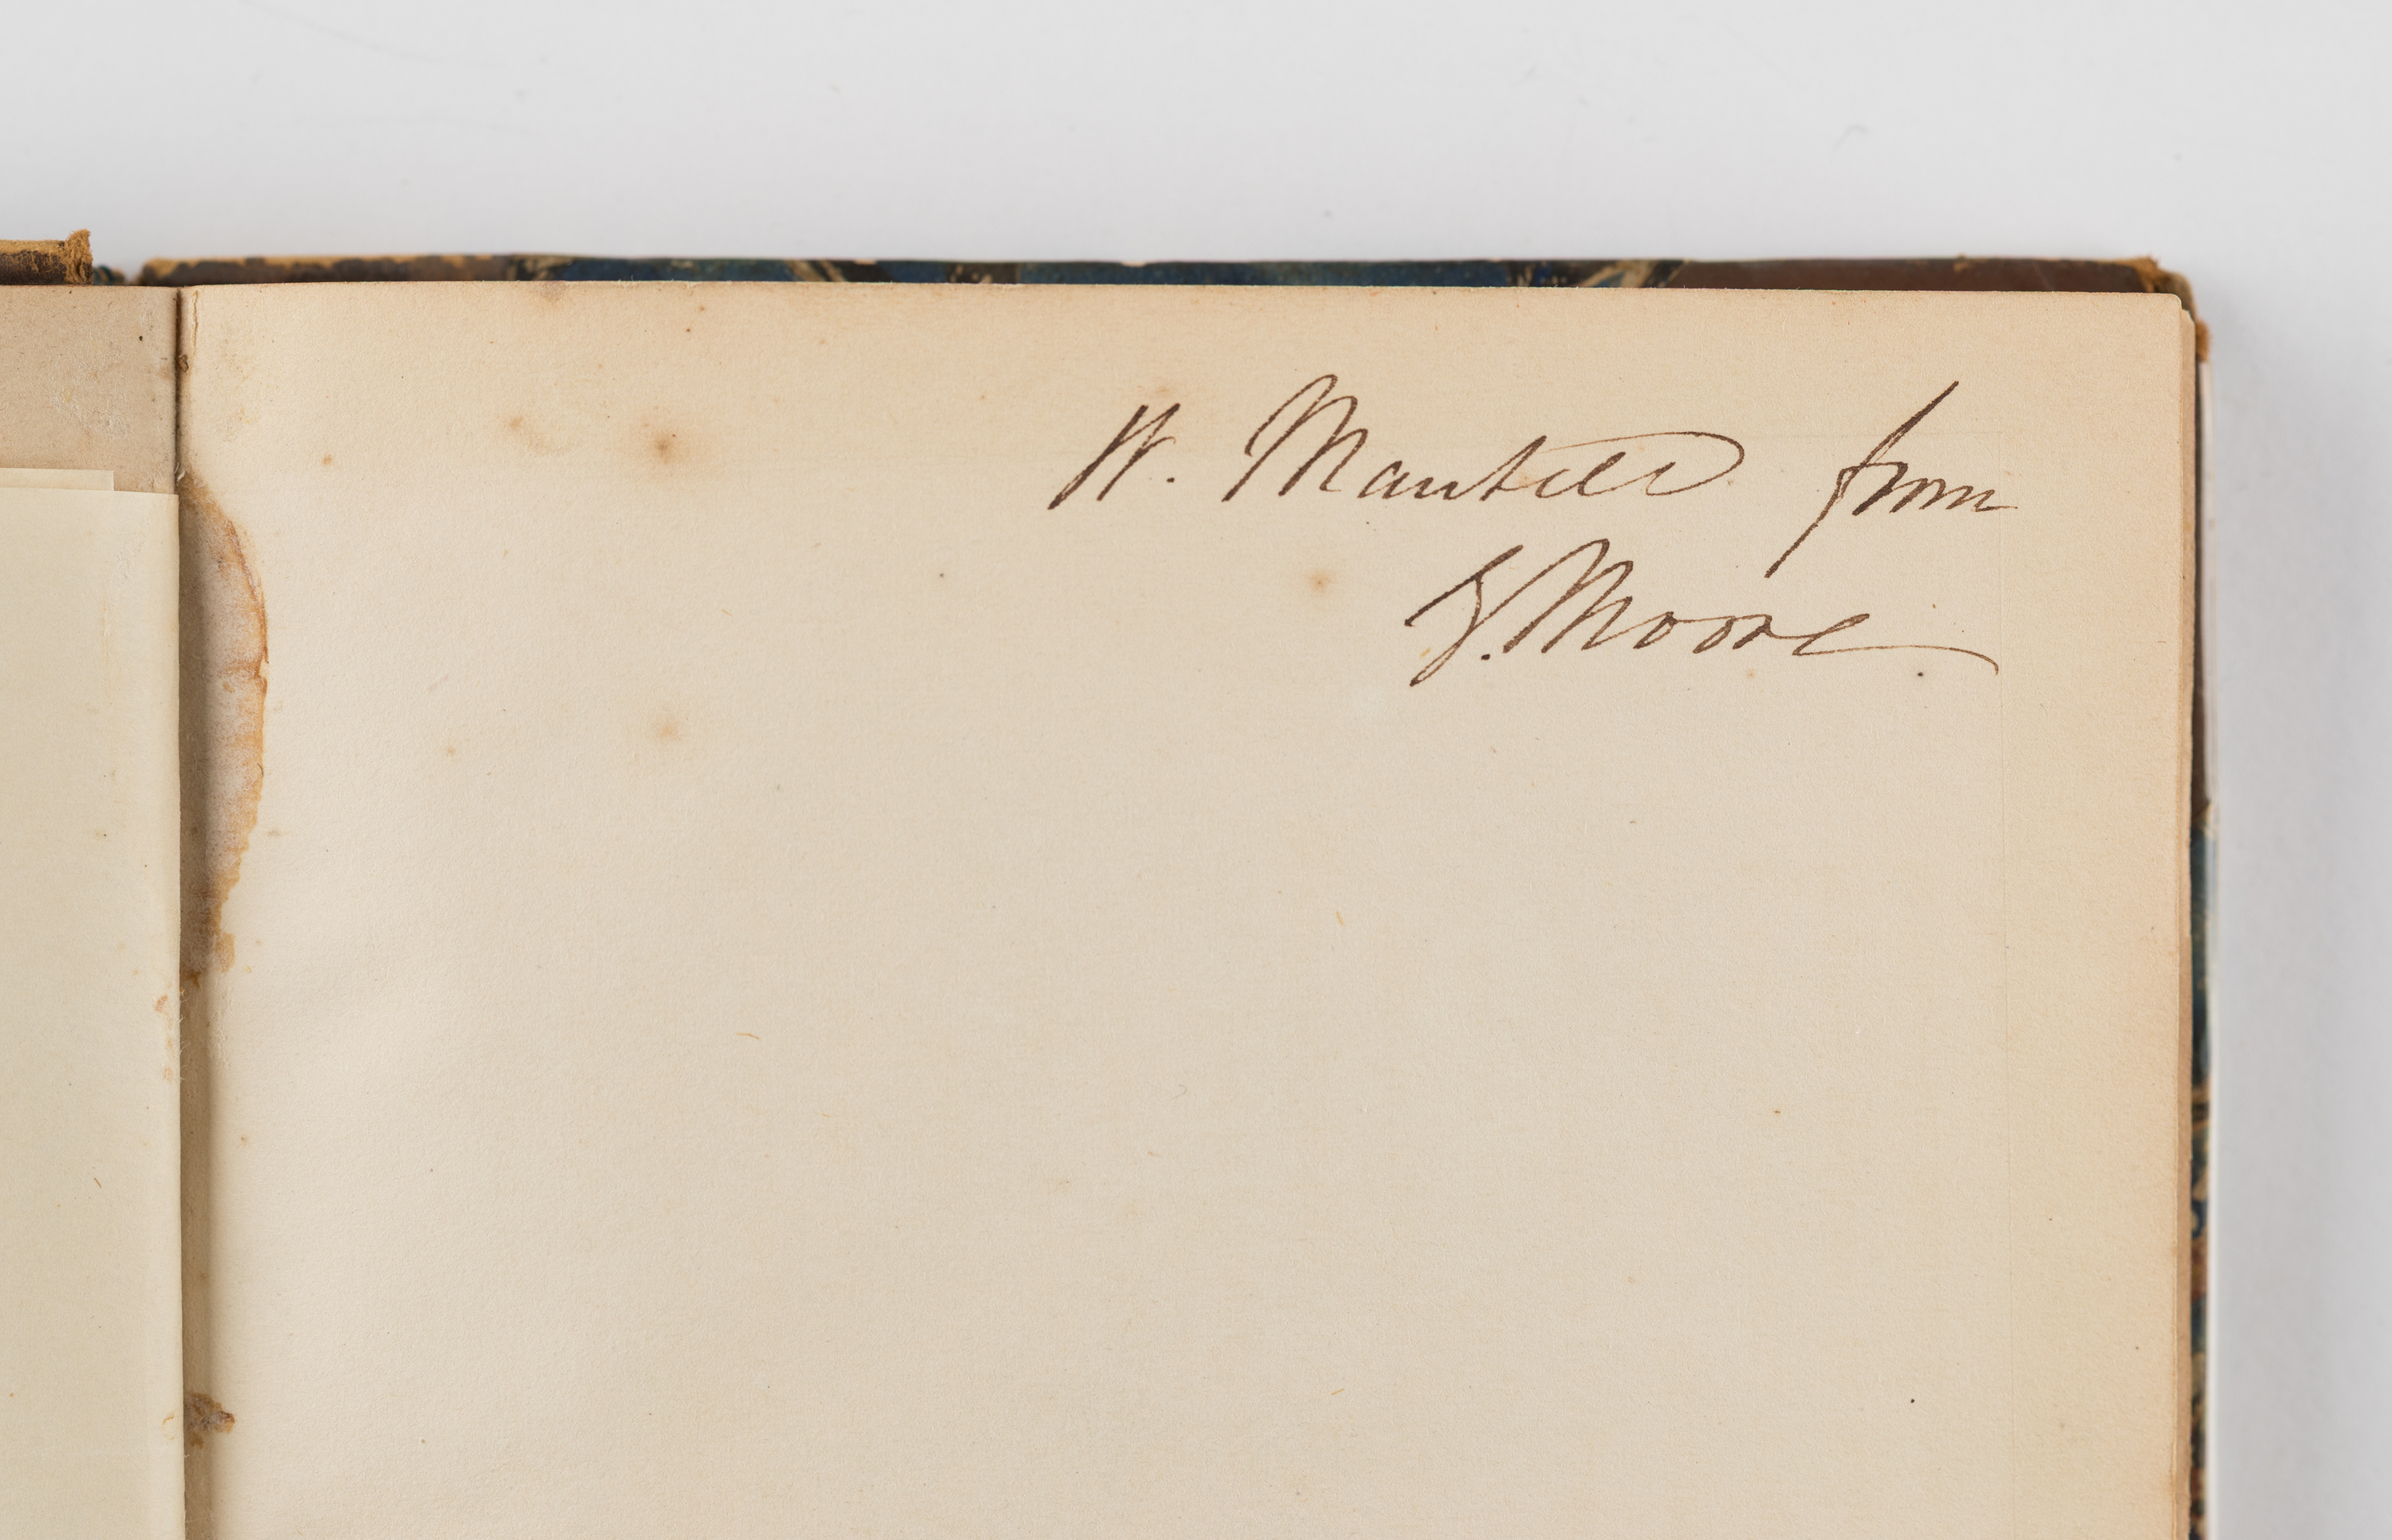 W. Mantell from
Moore